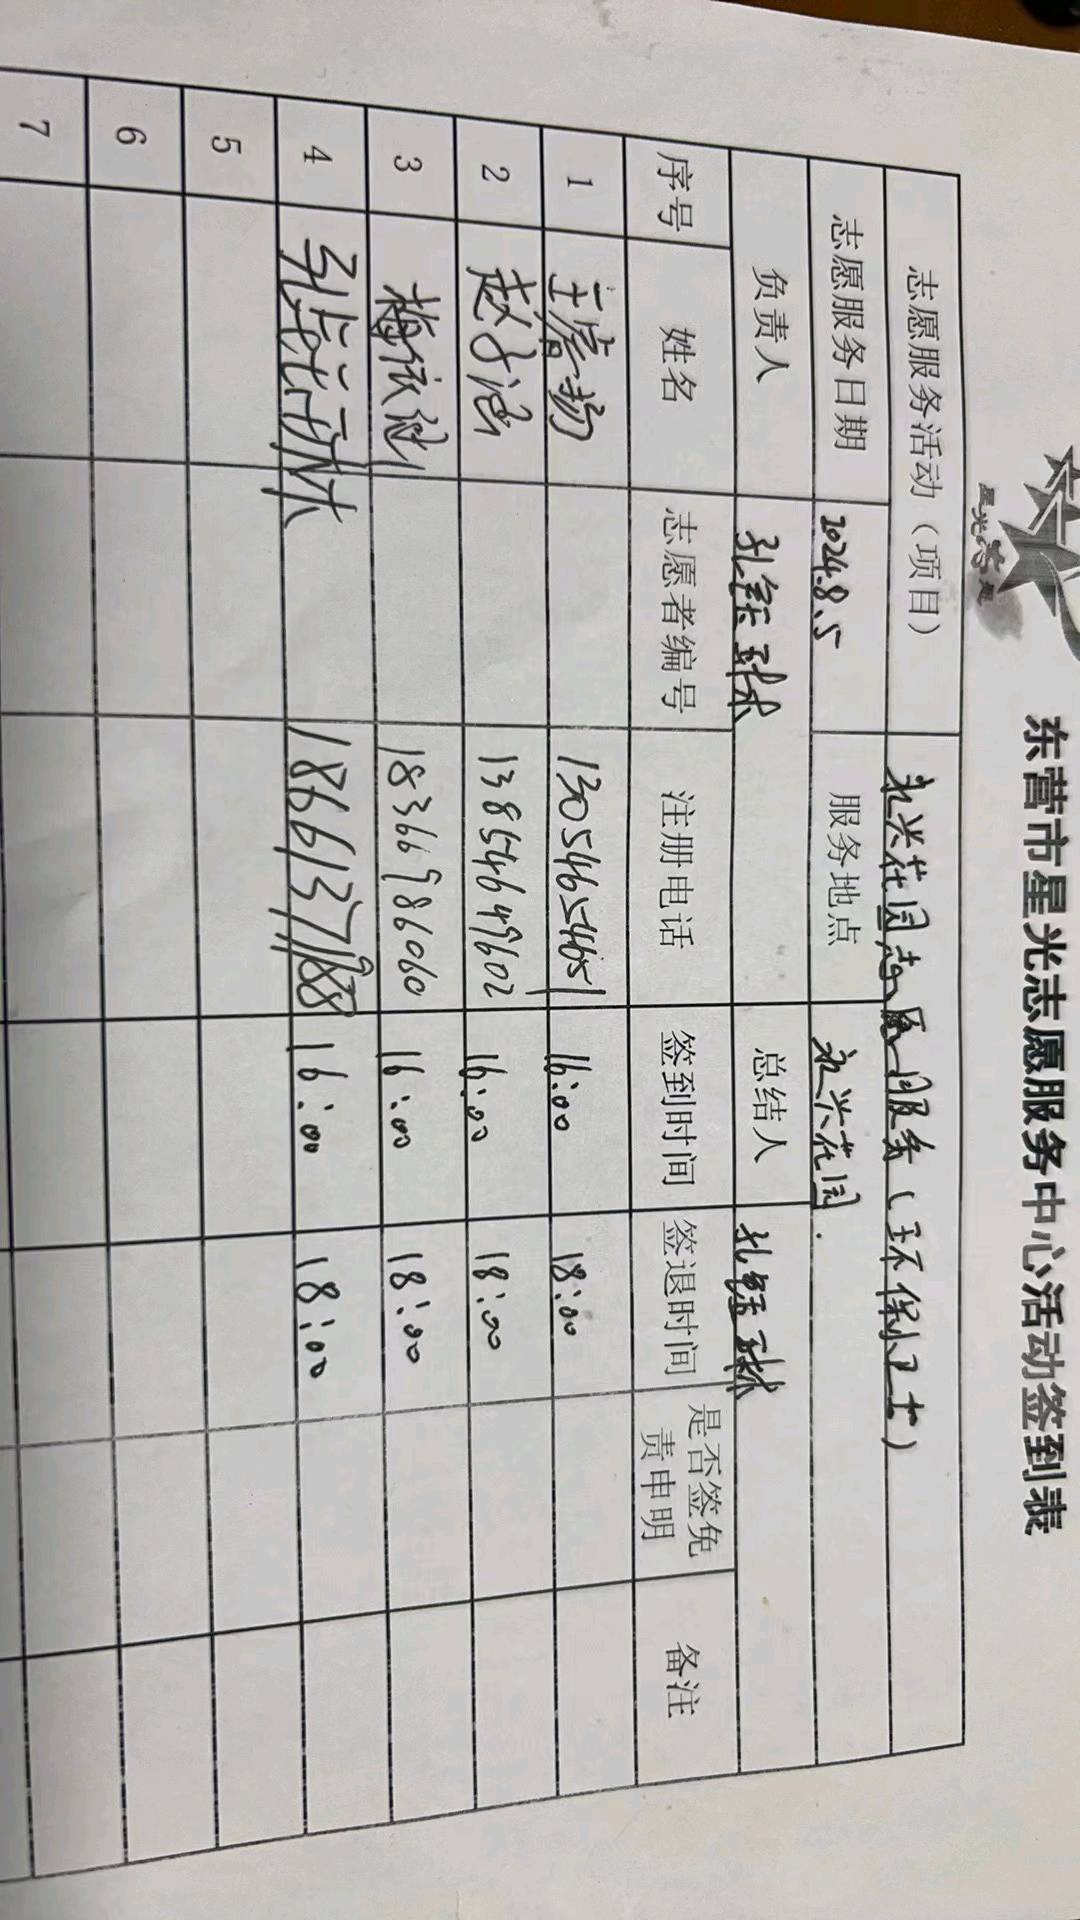 星光志愿
东营市星光志愿服务中心活动签到表
志愿服务活动（项目） 永兴花园志愿服务（环保卫士）
志愿服务日期 2024.8.5 服务地点 永兴花园.
负责人 孔钰琳 总结人 孔钰琳
序号 姓名 志愿者编号 注册电话 签到时间 签退时间 是否签免责申明 备注
1 13054654651 16:00 18:00
2 赵子涵 13854649602 16:00 18:00
3 梅依诺 18366986060 16:00 18:00
4 16:00 18:00
5
6
7